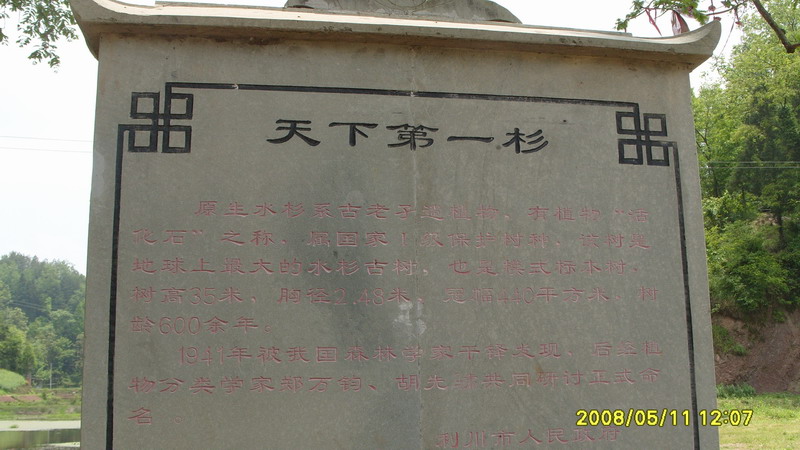 天下第一杉
原生水杉系古老孑遗植物,有植物“活
化石”之称,属国家I级保护树种,该树是
地球上最大的水杉古树,也是模式标本树,
树高35米,胸径2.48米,冠幅440平方米,树
龄600余年。
1941年被我国森林学家干铎发现,后经植
物分类学家郑万钧、胡先骕共同研讨正式命
名
利川市人民政府
2008/05/11 12:07